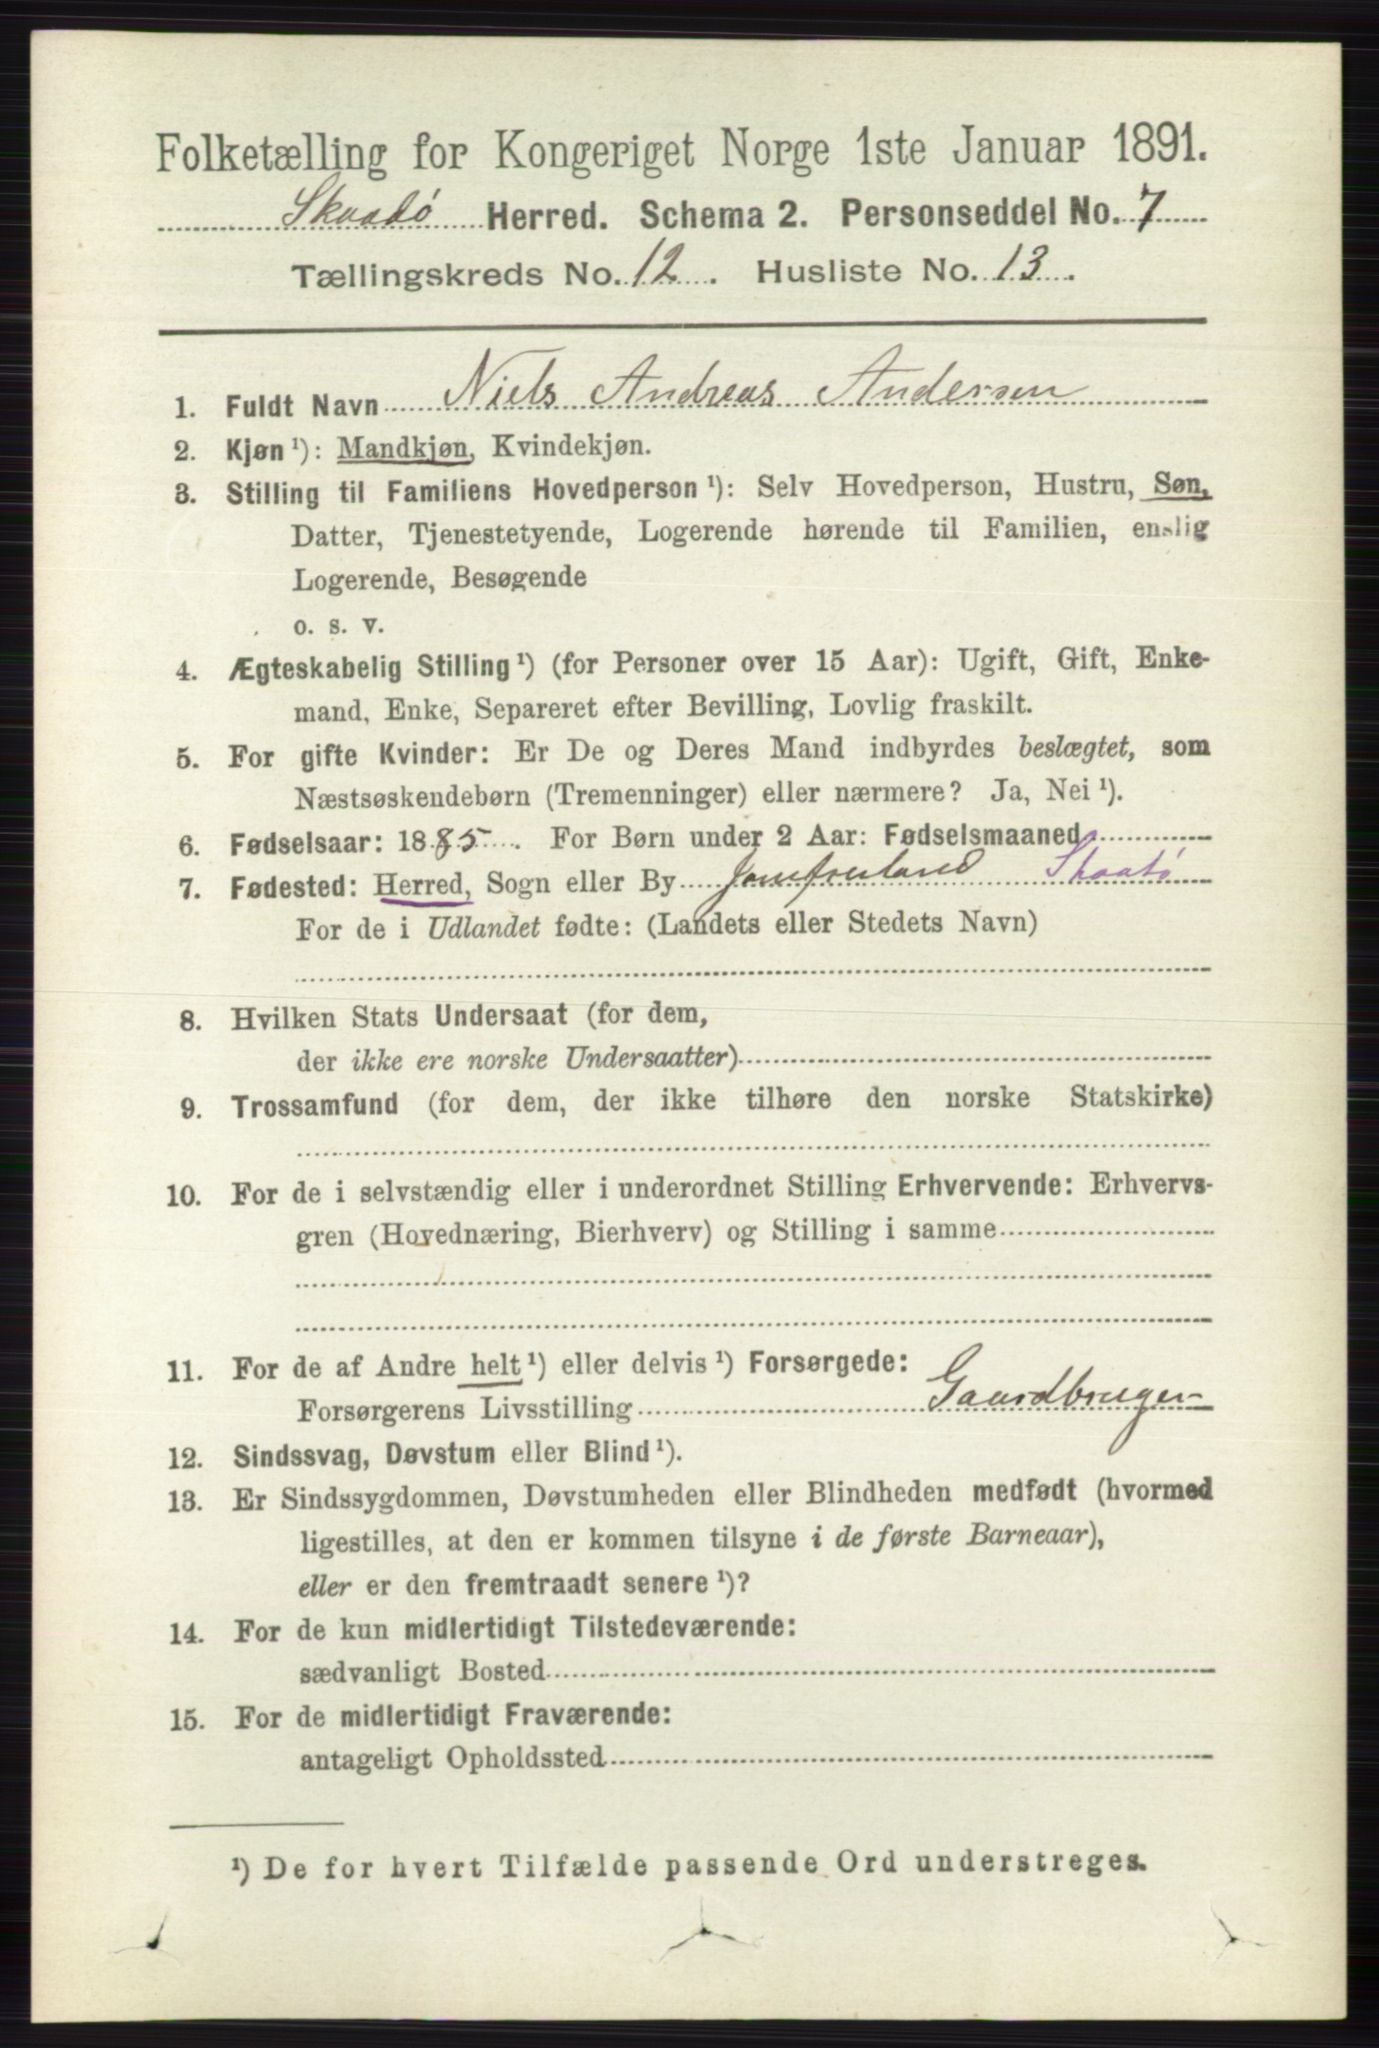 Folketælling for Kongeriget Norge 1ste Januar 1891.
Skaatø Herred. Schema 2. Personseddel No. 7
Tællingskreds No. 12. Husliste No. 13.
1. Fuldt Navn Niels Andreas Andersen
2. Kjøn ¹): Mandkjøn, Kvindekjøn.
3. Stilling til Familiens Hovedperson ¹): Selv Hovedperson, Hustru, Søn,
Datter, Tjenestetyende, Logerende hørende til Familien, enslig
Logerende, Besøgende
o. s. v.
4. Ægteskabelig Stilling ¹) (for Personer over 15 Aar): Ugift, Gift, Enke-
mand, Enke, Separeret efter Bevilling, Lovlig fraskilt.
5. For gifte Kvinder: Er De og Deres Mand indbyrdes beslægtet, som
Næstsøskendebørn (Tremenninger) eller nærmere? Ja, Nei ¹).
6. Fødselsaar: 1885. For Børn under 2 Aar: Fødselsmaaned
7. Fødested: Herred, Sogn eller By Jomfruland Skaatø
For de i Udlandet fødte: (Landets eller Stedets Navn)
8. Hvilken Stats Undersaat (for dem,
der ikke ere norske Undersaatter)
9. Trossamfund (for dem, der ikke tilhøre den norske Statskirke)
10. For de i selvstændig eller i underordnet Stilling Erhvervende: Erhvervs-
gren (Hovednæring, Bierhverv) og Stilling i samme
11. For de af Andre helt ¹) eller delvis ¹) Forsørgede:
Forsørgerens Livsstilling Gaardbruger
12. Sindssvag, Døvstum eller Blind ¹).
13. Er Sindssygdommen, Døvstumheden eller Blindheden medfødt (hvormed
ligestilles, at den er kommen tilsyne i de første Barneaar),
eller er den fremtraadt senere ¹)?
14. For de kun midlertidigt Tilstedeværende:
sædvanligt Bosted
15. For de midlertidigt Fraværende:
antageligt Opholdssted
¹) De for hvert Tilfælde passende Ord understreges.